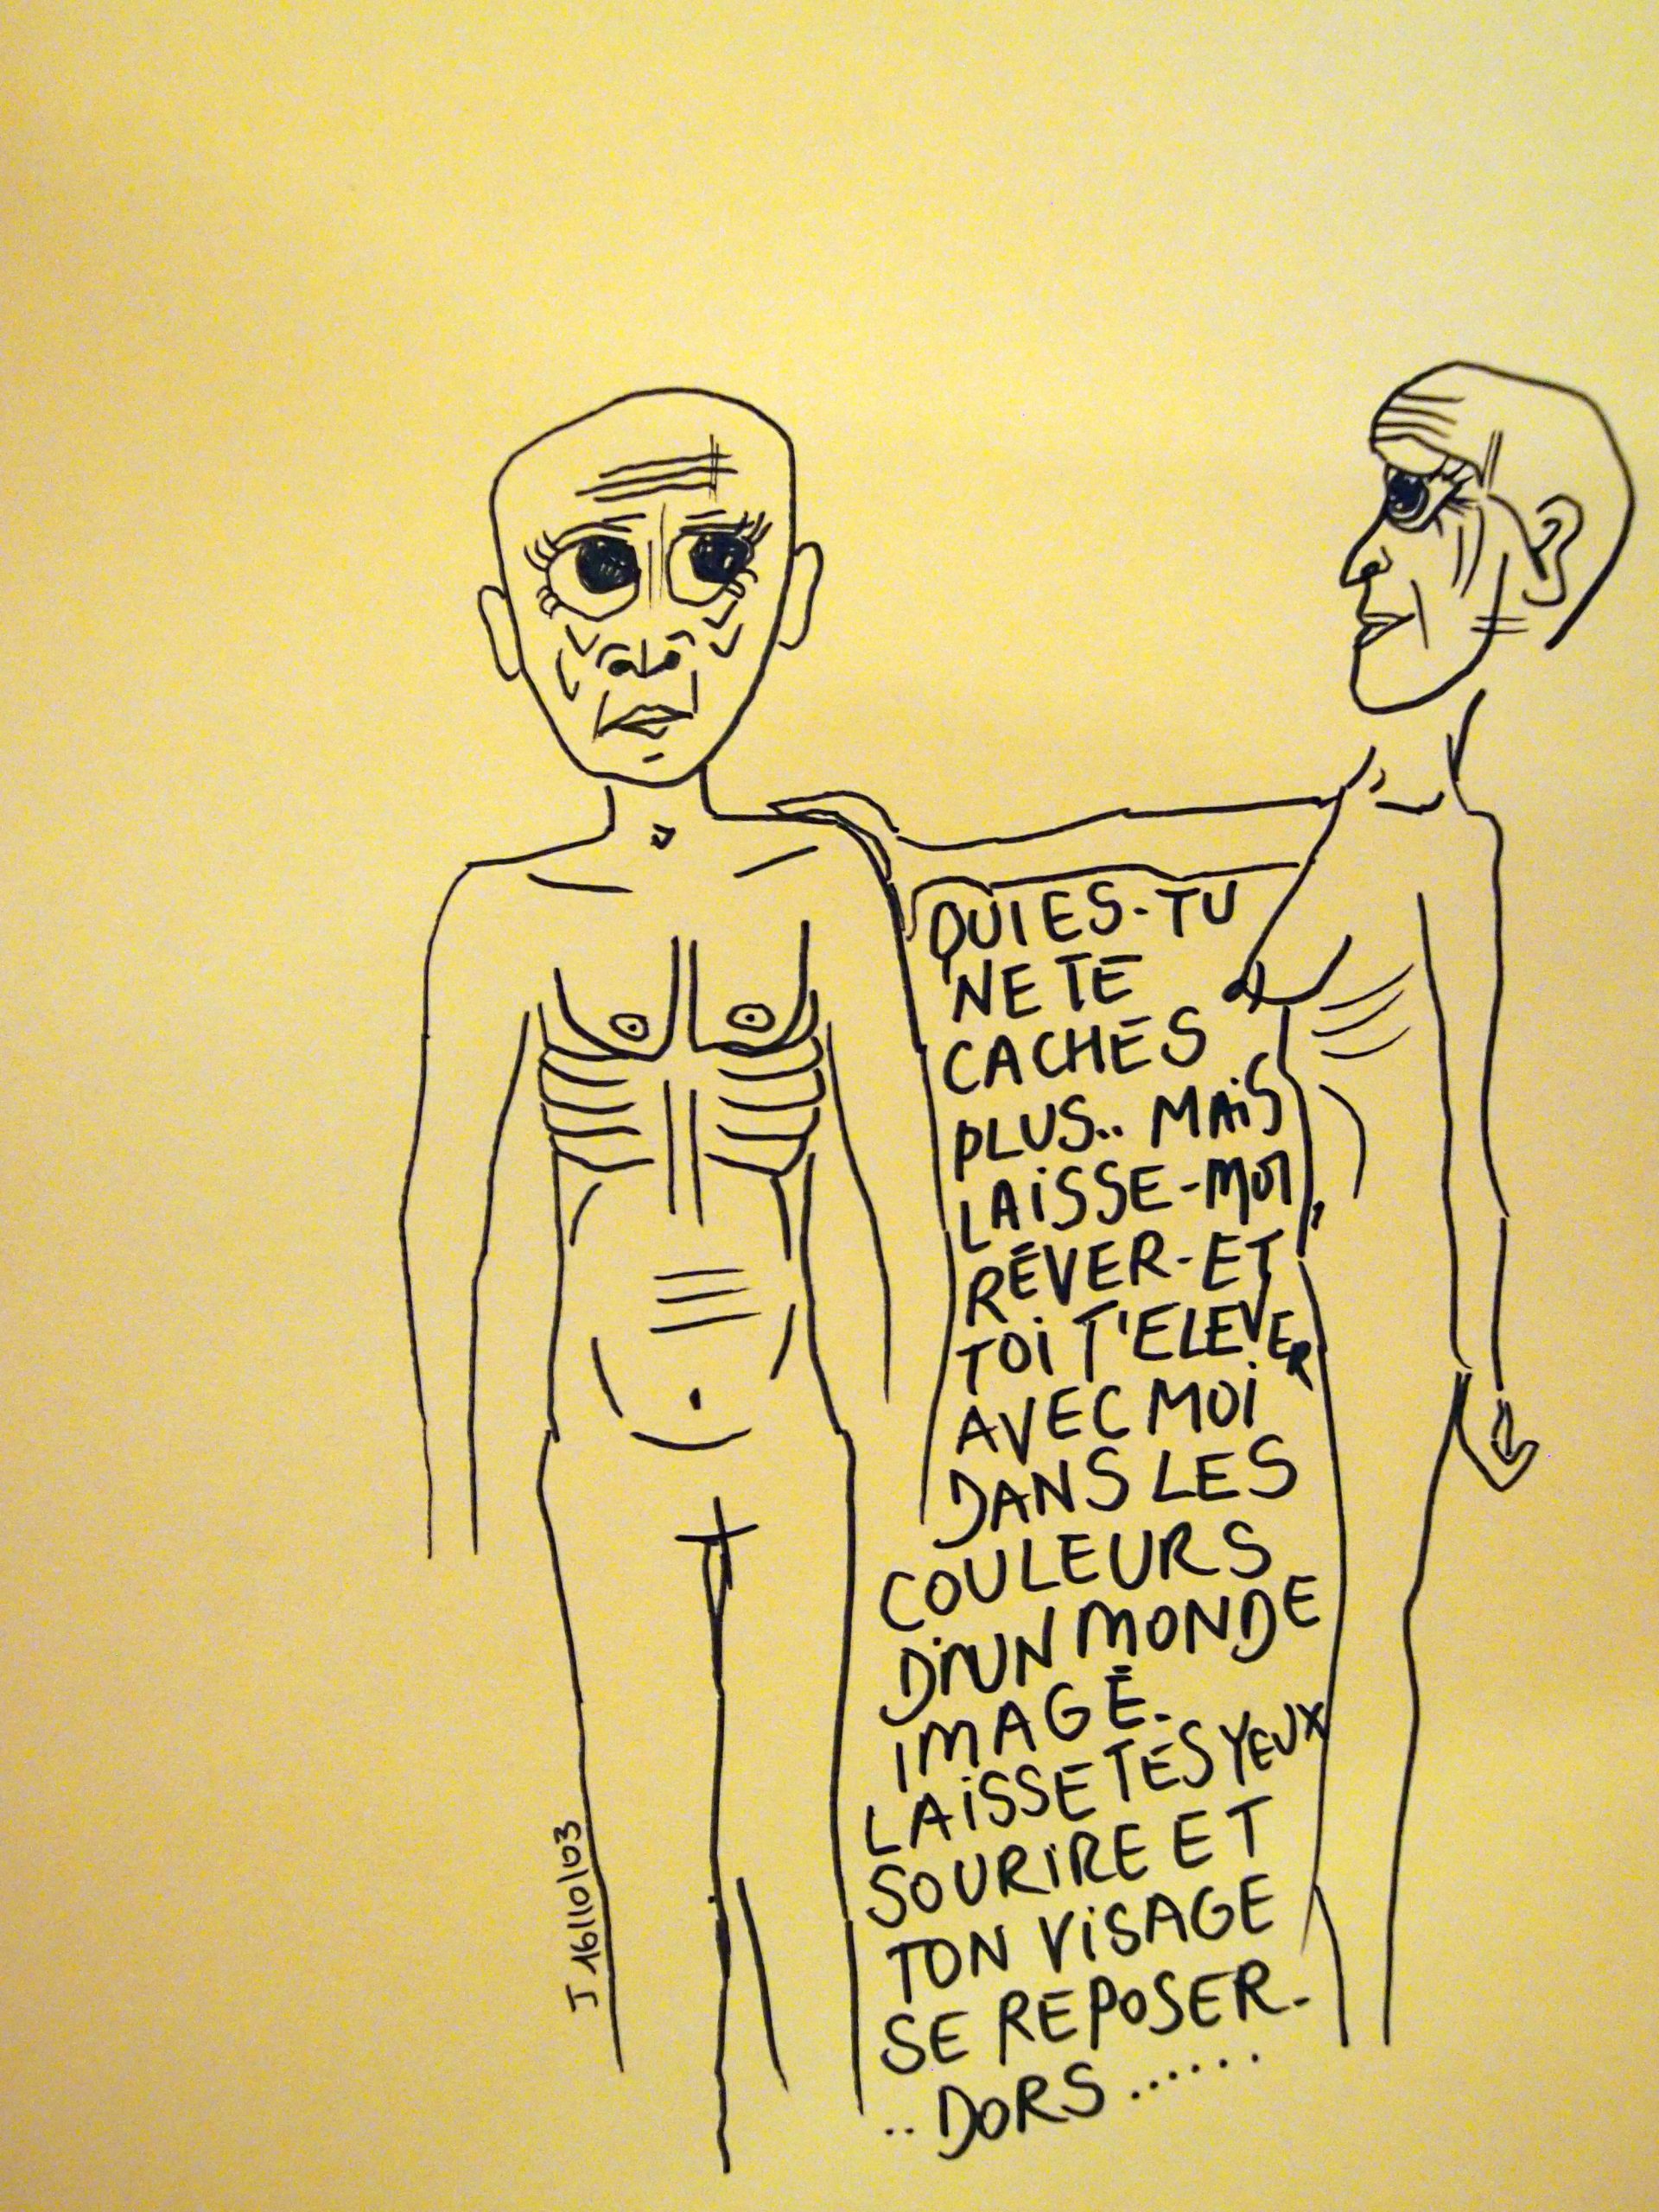 QUI ES-TU
NE TE
CACHES
PLUS.. MAiS
LAiSSE-MOI,
RÊVER-ET
TOi T'ELEVER
AVEC MOi
DANS LES
COULEURS
D'UN MONDE
IMAGÉ.
LAiSSE TES YEUX
SOURIRE ET
TON ViSAGE
SE REPOSER-
..DORS......
J 16/10/03